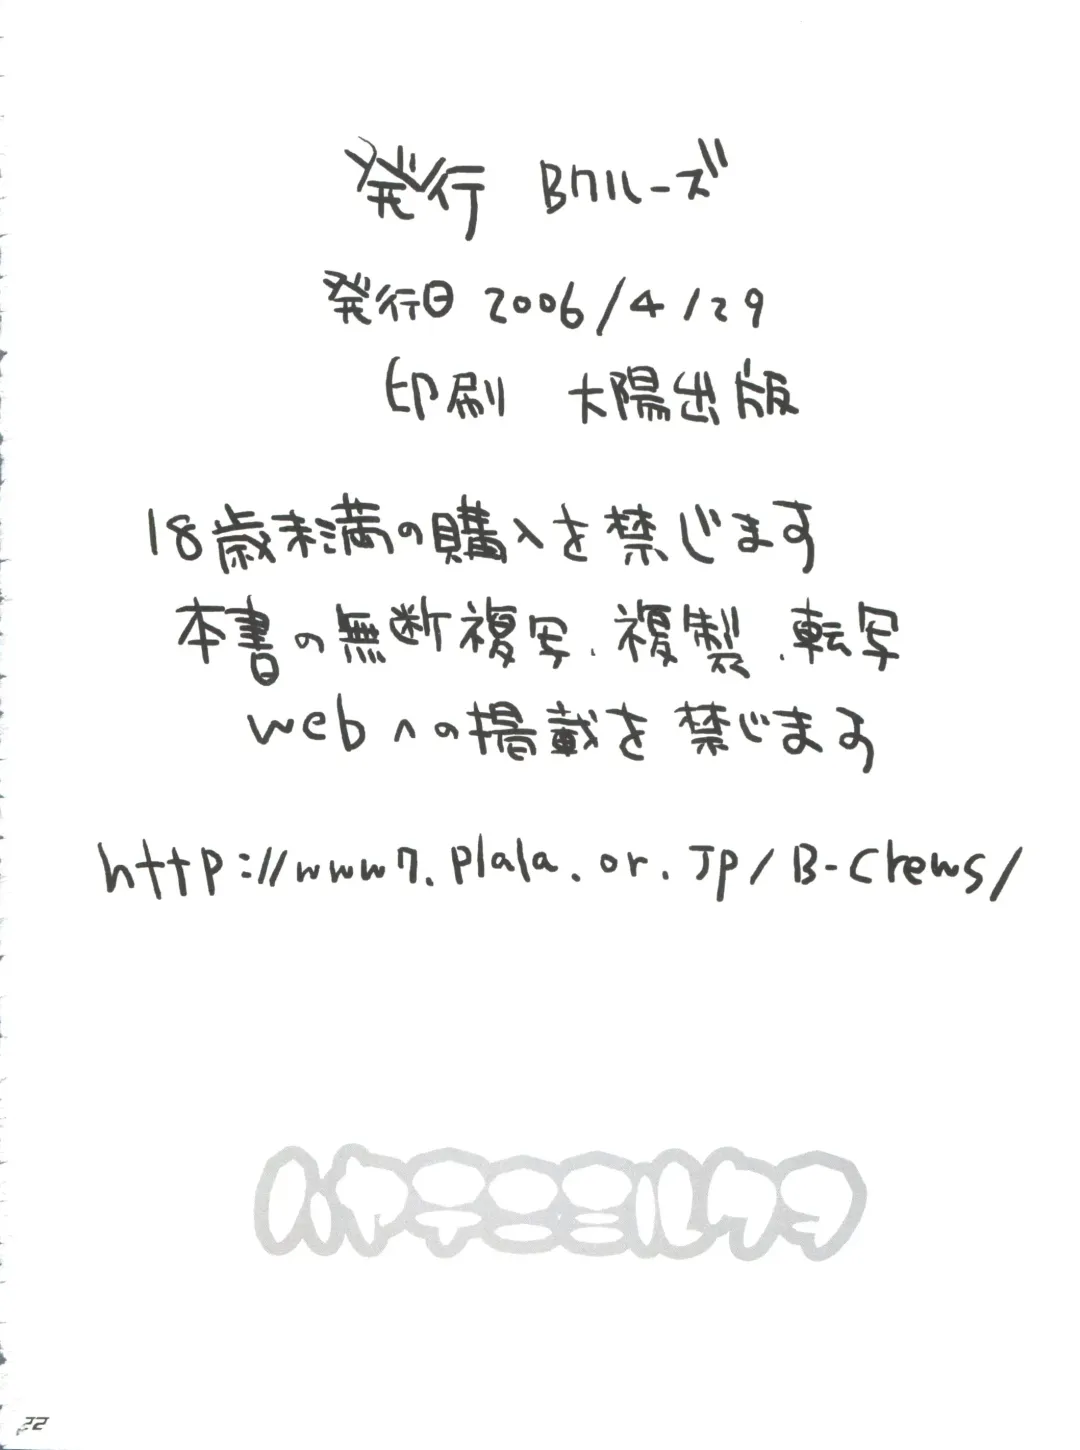 発行 Bクルーズ
発行日 2006/4/29
印刷 大陽出版
18歳未満の購入を禁じます
本書の無断複写、複製、転写
webへの掲載を禁じます
http://www7.plala.or.jp/B-Crews/
ハヤテニミルクヲ
22